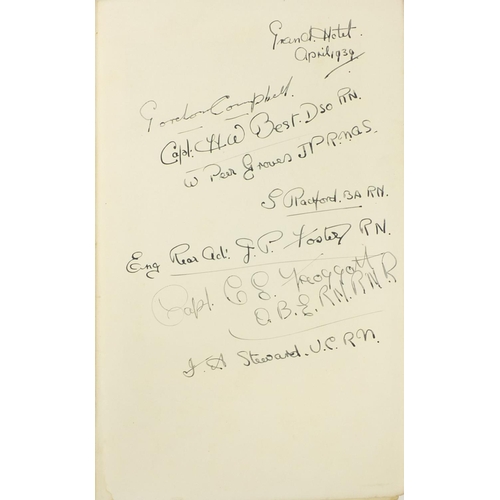 Grand Hotel
April, 1939
Gordon Campbell.
Capt. H.W Best. DSO RN.
W Peer Groves JP R.N.A.S.
S Rackford. BA RN.
Eng Rear Ad: J.P. Foster RN.
Capt. C S. Froggatt
O.B.E. RN. RNR
J. A Steward. V.C. R.N.